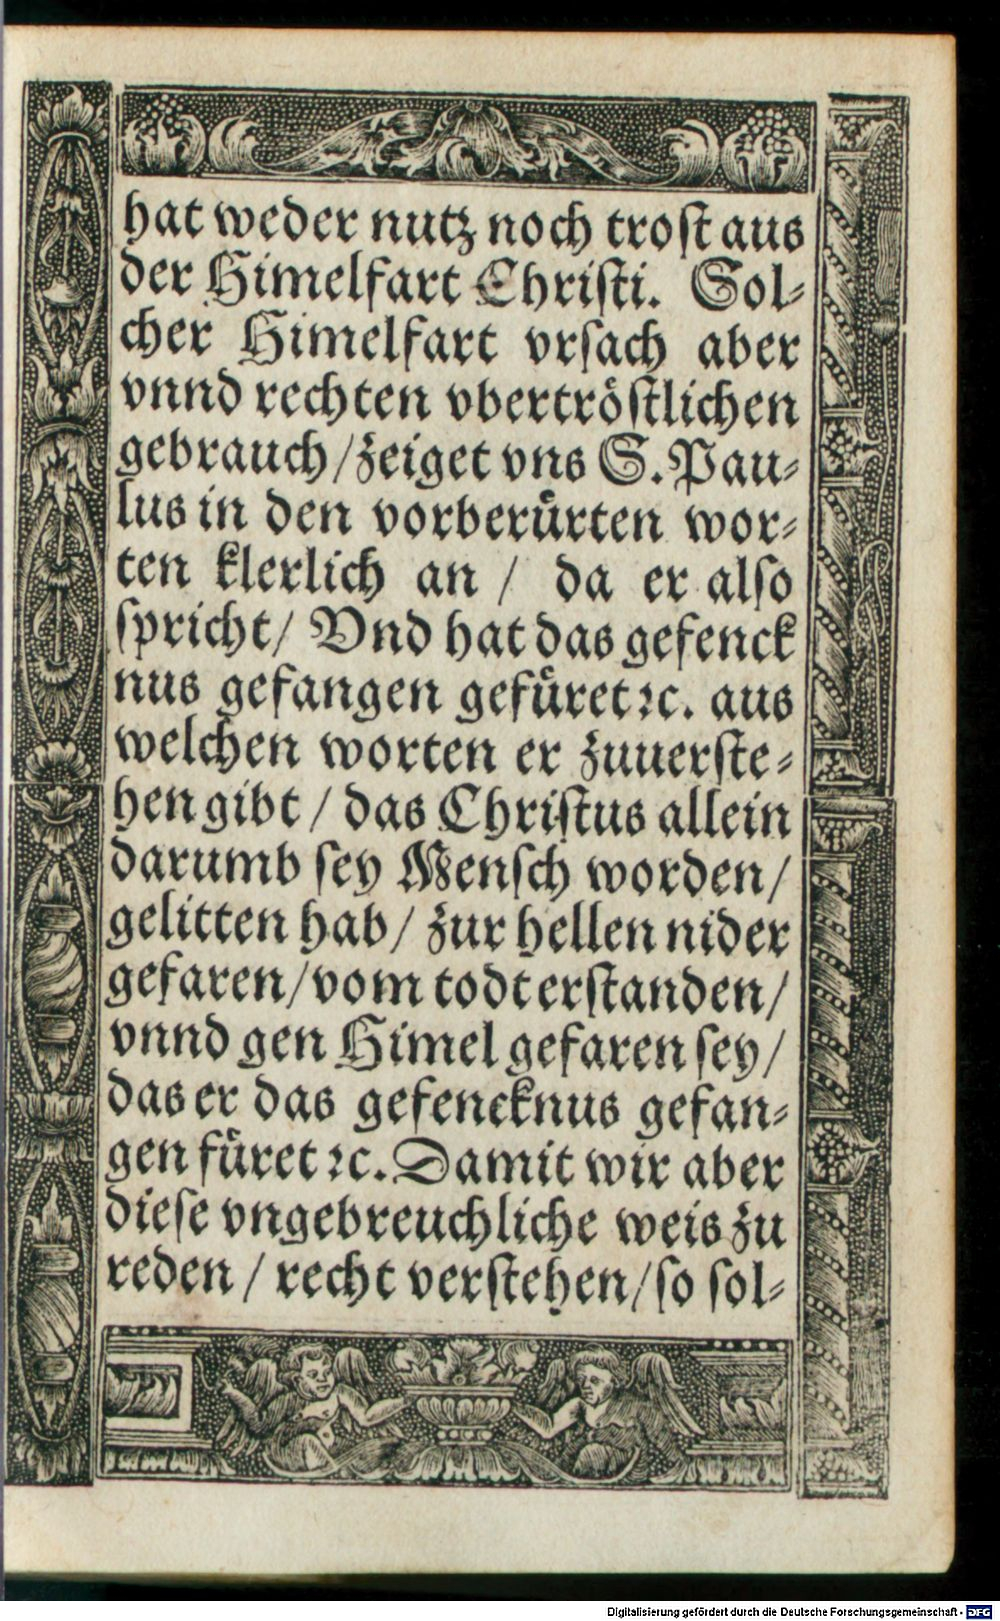 hat weder nutz noch troſt aus
der Himelfart Chriſti. Sol⸗
cher Himelfart vrſach aber
vnnd rechten vbertröſtlichen
gebrauch/zeiget vns S. Pau⸗
lus in den vorberürten wor⸗
ten klerlich an / da er alſo
ſpricht/ Vnd hat das gefenck
nus gefangen gefüret ꝛc. aus
welchen worten er zuuerſte⸗
hen gibt / das Chriſtus allein
darumb ſey Menſch worden/
gelitten hab/ zur hellen nider
gefaren/vom todt erſtanden/
vnnd gen Himel gefaren ſey/
das er das gefencknus gefan⸗
gen füret ꝛc. Damit wir aber
dieſe vngebreuchliche weis zu
reden / recht verſtehen/ſo ſol⸗
Digitalisierung gefördert durch die Deutsche Forschungsgemeinschaft - DFG